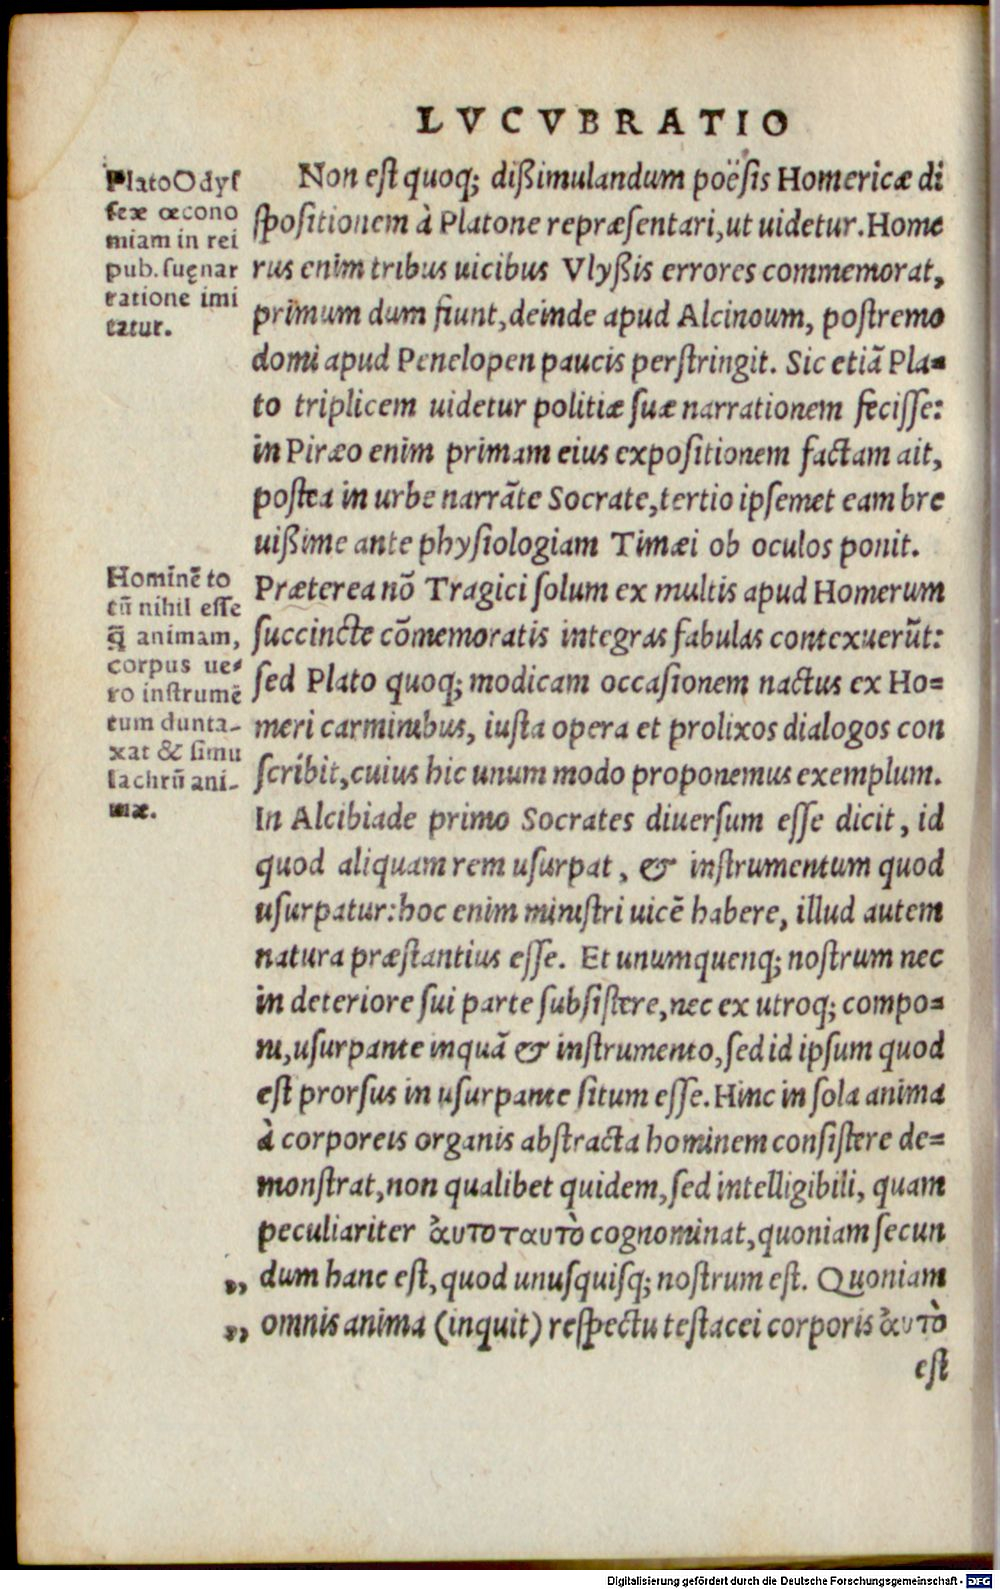 LVCVBRATIO
Plato Odyſ
ſeæ œcono
miam in rei
pub. ſuę nar
ratione imi
tatur.
Non eſt quoq; dißimulandum poëſis Homericæ di
ſpoſitionem à Platone repræſentari, ut uidetur. Home
rus enim tribus uicibus Vlyßis errores commemorat,
primum dum fiunt, deinde apud Alcinoum, poſtremo
domi apud Penelopen paucis perſtringit. Sic etiã Pla-
to triplicem uidetur politiæ ſuæ narrationem feciſſe:
in Piræo enim primam eius expoſitionem factam ait,
poſtea in urbe narrãte Socrate, tertio ipſemet eam bre
uißime ante phyſiologiam Timæi ob oculos ponit.
Hominẽ to
tũ nihil eſſe
q̃ animam,
corpus ue-
ro inſtrumẽ
tum dunta-
xat & ſimu
lachrũ ani-
mæ.
Præterea nõ Tragici ſolum ex multis apud Homerum
ſuccincte cõmemoratis integras fabulas contexuerũt:
ſed Plato quoq; modicam occaſionem nactus ex Ho=
meri carminibus, iuſta opera et prolixos dialogos con
ſcribit, cuius hic unum modo proponemus exemplum.
In Alcibiade primo Socrates diuerſum eſſe dicit, id
quod aliquam rem uſurpat, & inſtrumentum quod
uſurpatur: hoc enim miniſtri uicẽ habere, illud autem
natura præſtantius eſſe. Et unumquenq; noſtrum nec
in deteriore ſui parte ſubſiſtere, nec ex utroq; compo=
ni, uſurpante inquã & inſtrumento, ſed id ipſum quod
eſt prorſus in uſurpante ſitum eſſe. Hinc in ſola anima
à corporeis organis abſtracta hominem conſiſtere de=
monſtrat, non qualibet quidem, ſed intelligibili, quam
peculiariter ἀυτοταυτὸ cognominat, quoniam ſecun
„ dum hanc eſt, quod unuſquiſq; noſtrum eſt. Quoniam
„ omnis anima (inquit) reſpectu teſtacei corporis ἀυτὸ
eſt
Digitalisierung gefördert durch die Deutsche Forschungsgemeinschaft - DFG